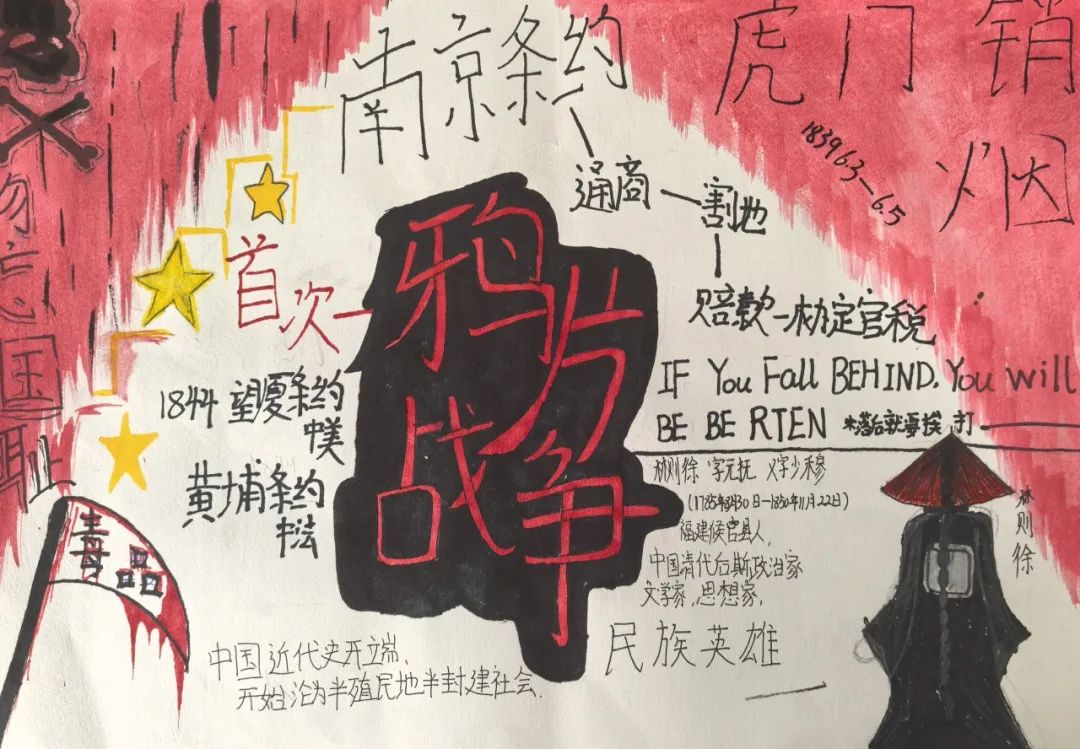 南京条约
虎门销
烟
1839 6.3—6.5
勿忘国耻
通商—割地
赔款—协定官税
首次
鸦片
战争
1844 望厦条约
中美
黄埔条约
中法
IF You Fall BEHIND. You will
BE BE RTEN 落后就要挨打
林则徐 字元抚 又字少穆
(1785年8月30日—1850年11月22日)
福建候官县人,
中国清代后斯政治家
文学家,思想家,
民族英雄
林则徐
毒品
中国近代史开端,
开始沦为半殖民地半封建社会.